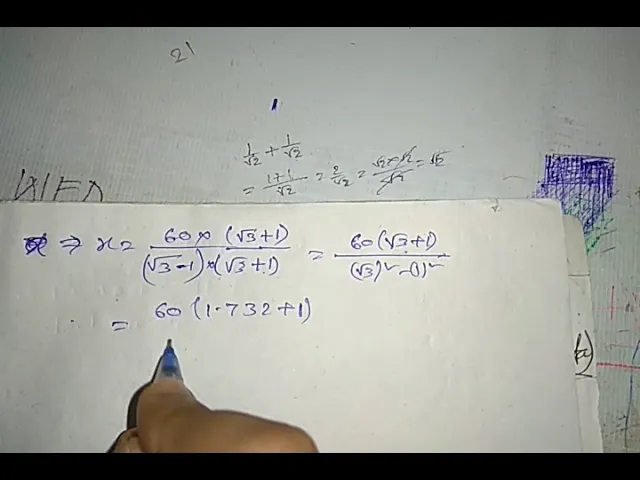 21
1/√2 + 1/√2
= (1+1)/√2 = 2/√2 = (√2×√2)/√2 = √2
⇒ x = 60×(√3+1)/((√3-1)×(√3+1)) = 60(√3+1)/((√3)²-(1)²)
= 60(1.732+1)